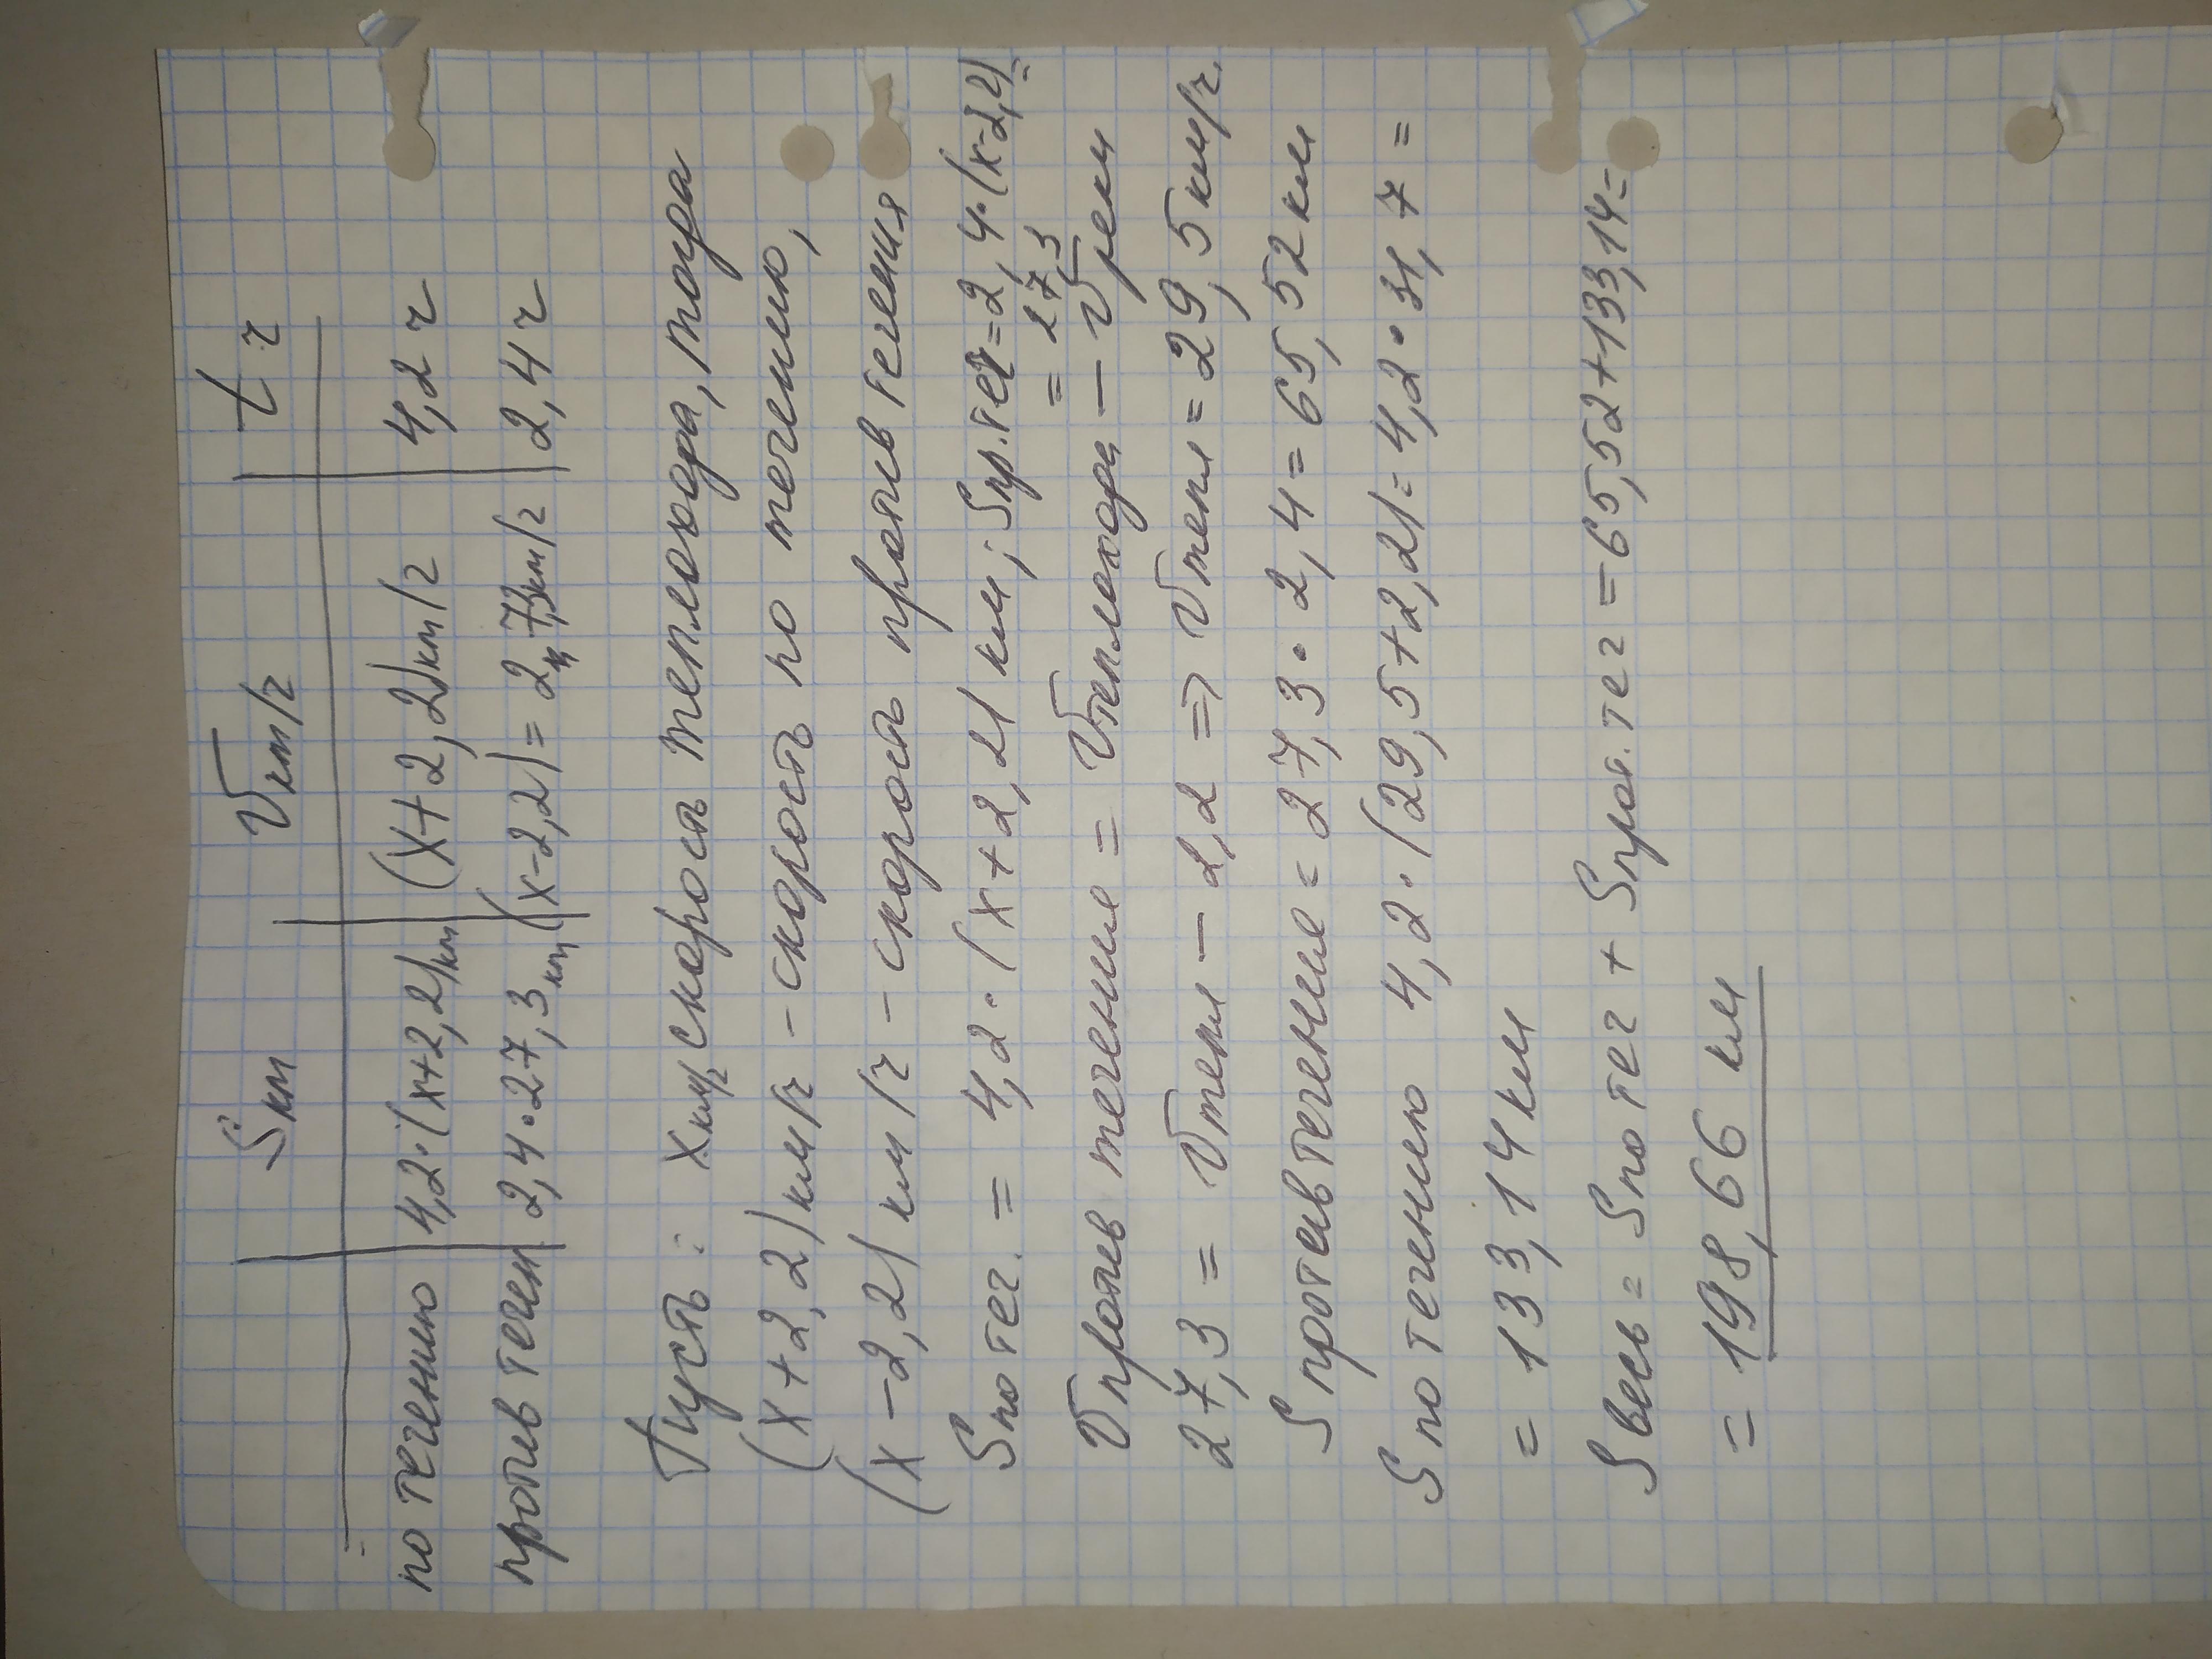 S км | V км/г | t г
по течению | 4,2·(x+2,2) км | (x+2,2) км/г | 4,2 г
против течен | 2,4·27,3 км | (x-2,2) = 27,3 км/г | 2,4 г
Пусть: x км/г скорость теплохода, тогда
(x+2,2) км/г - скорость по течению,
(x-2,2) км/г - скорость против течения
S по теч. = 4,2·(x+2,2) км; S пр.теч = 2,4·(x-2,2)
= 27,3
V против течения = V теплохода - V реки
27,3 = V тепл - 2,2 => V тепл = 29,5 км/г.
S против течение = 27,3·2,4 = 65,52 км
S по течению 4,2·(29,5+2,2) = 4,2·31,7 =
= 133,14 км
S весь = S по теч + S прот.теч = 65,52+133,14=
= 198,66 км